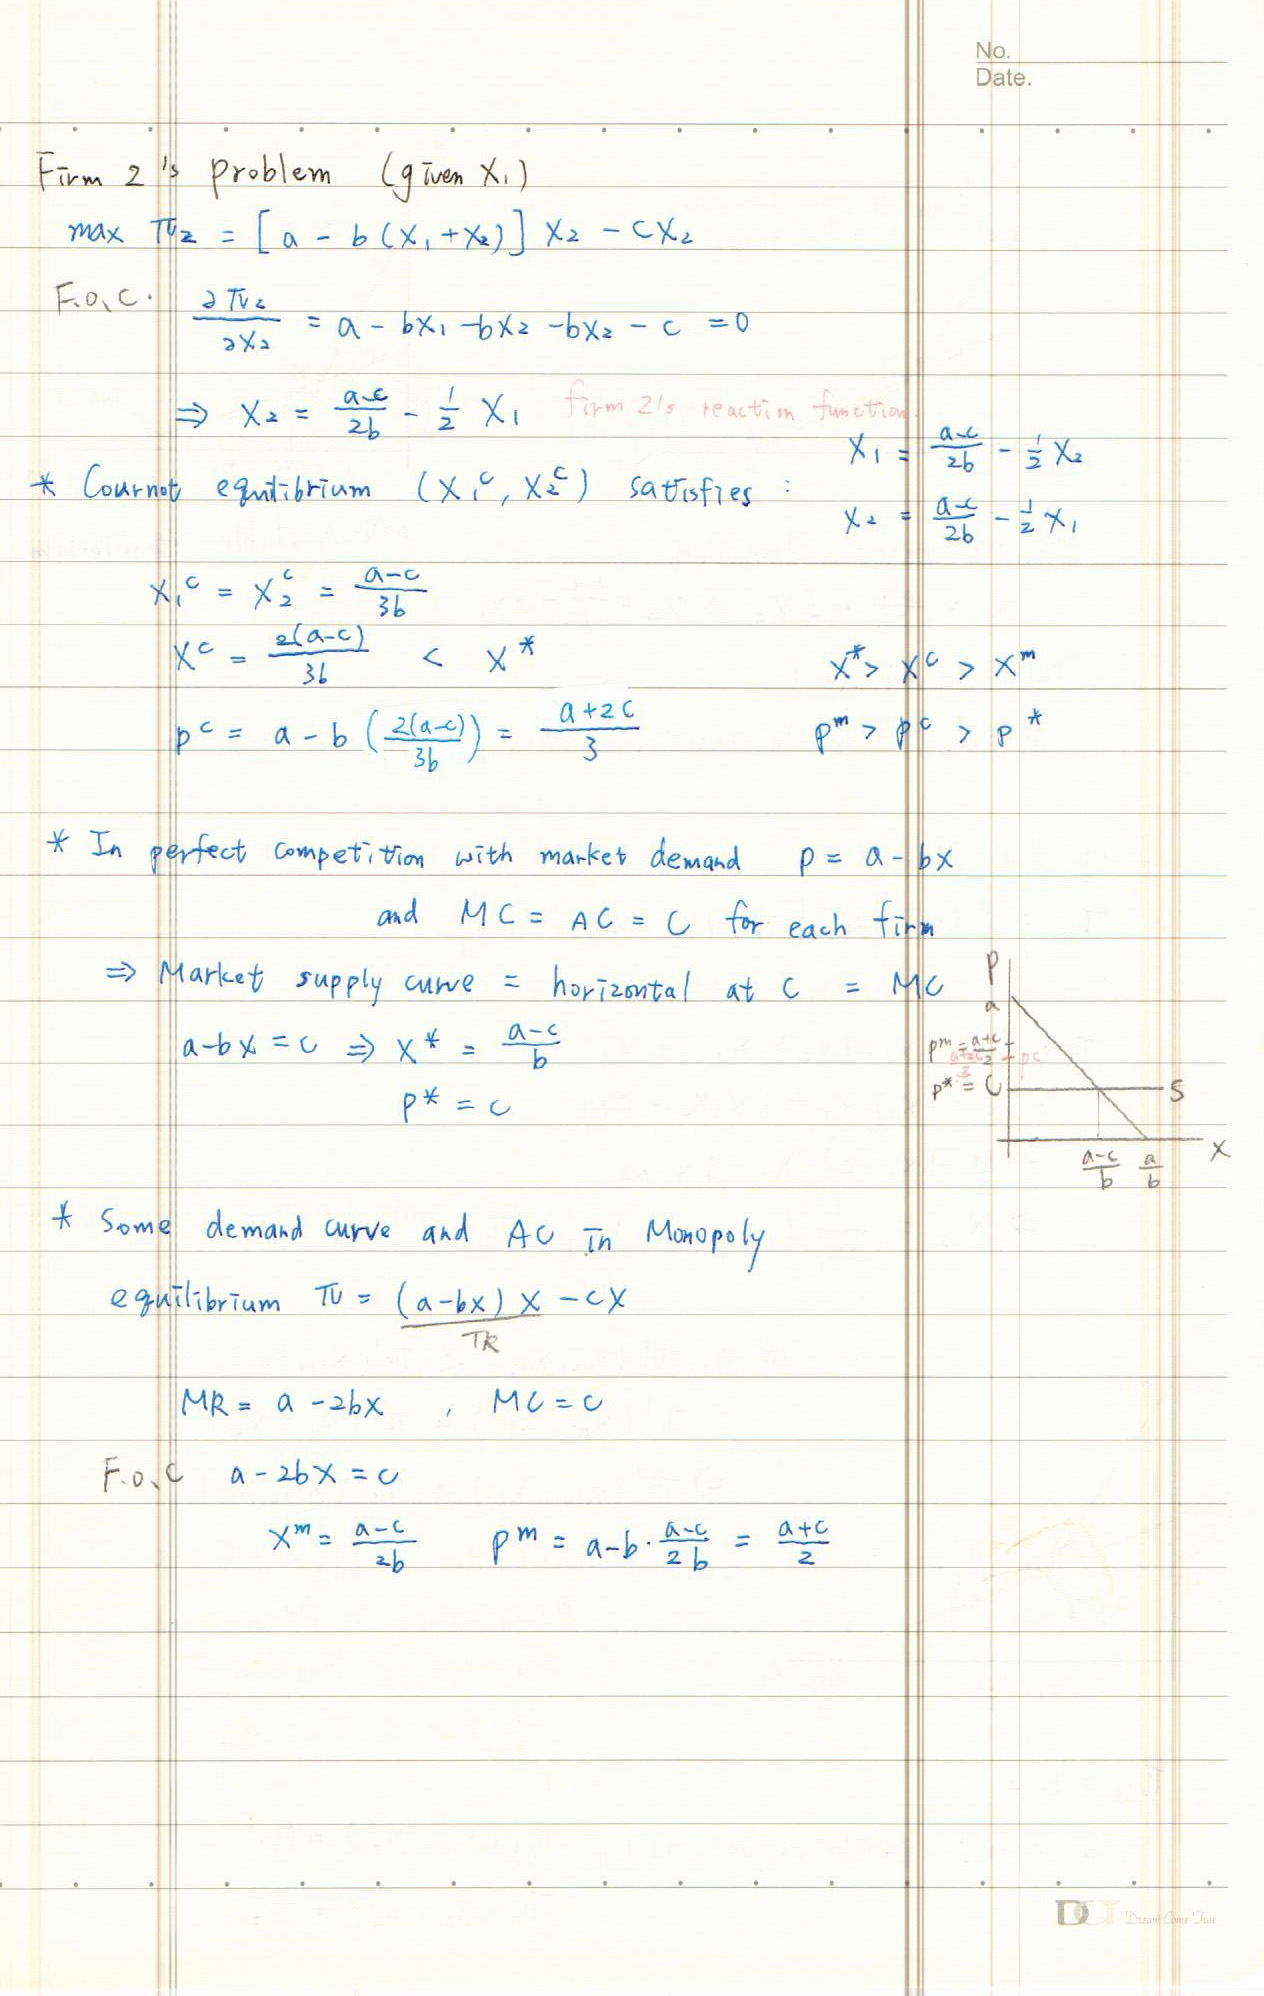 No.
Date.
Firm 2's problem (given X₁)
max π₂ = [a - b(X₁+X₂)] X₂ - CX₂
F.O.C. ∂π₂/∂X₂ = a - bX₁ - bX₂ - bX₂ - c = 0
⇒ X₂ = (a-c)/2b - 1/2 X₁ firm 2's reaction function
X₁ = (a-c)/2b - 1/2 X₂
* Cournot equilibrium (X₁ᶜ, X₂ᶜ) satisfies :
X₂ = (a-c)/2b - 1/2 X₁
X₁ᶜ = X₂ᶜ = (a-c)/3b
Xᶜ = 2(a-c)/3b < X* X* > Xᶜ > Xᵐ
pᶜ = a - b (2(a-c)/3b) = (a+2c)/3 pᵐ > pᶜ > p*
* In perfect competition with market demand p = a - bx
and MC = AC = C for each firm
⇒ Market supply curve = horizontal at C = MC
a-bx = c ⇒ X* = (a-c)/b
p* = c
P
a
pᵐ = (a+c)/2
(a+2c)/3 pc
p* = C
S
(a-c)/b a/b X
* Some demand curve and AC in Monopoly
equilibrium π = (a-bx) x - cx
TR
MR = a - 2bx , MC = c
F.O.C a - 2bx = c
Xᵐ = (a-c)/2b pᵐ = a-b·(a-c)/2b = (a+c)/2
Dream Come True